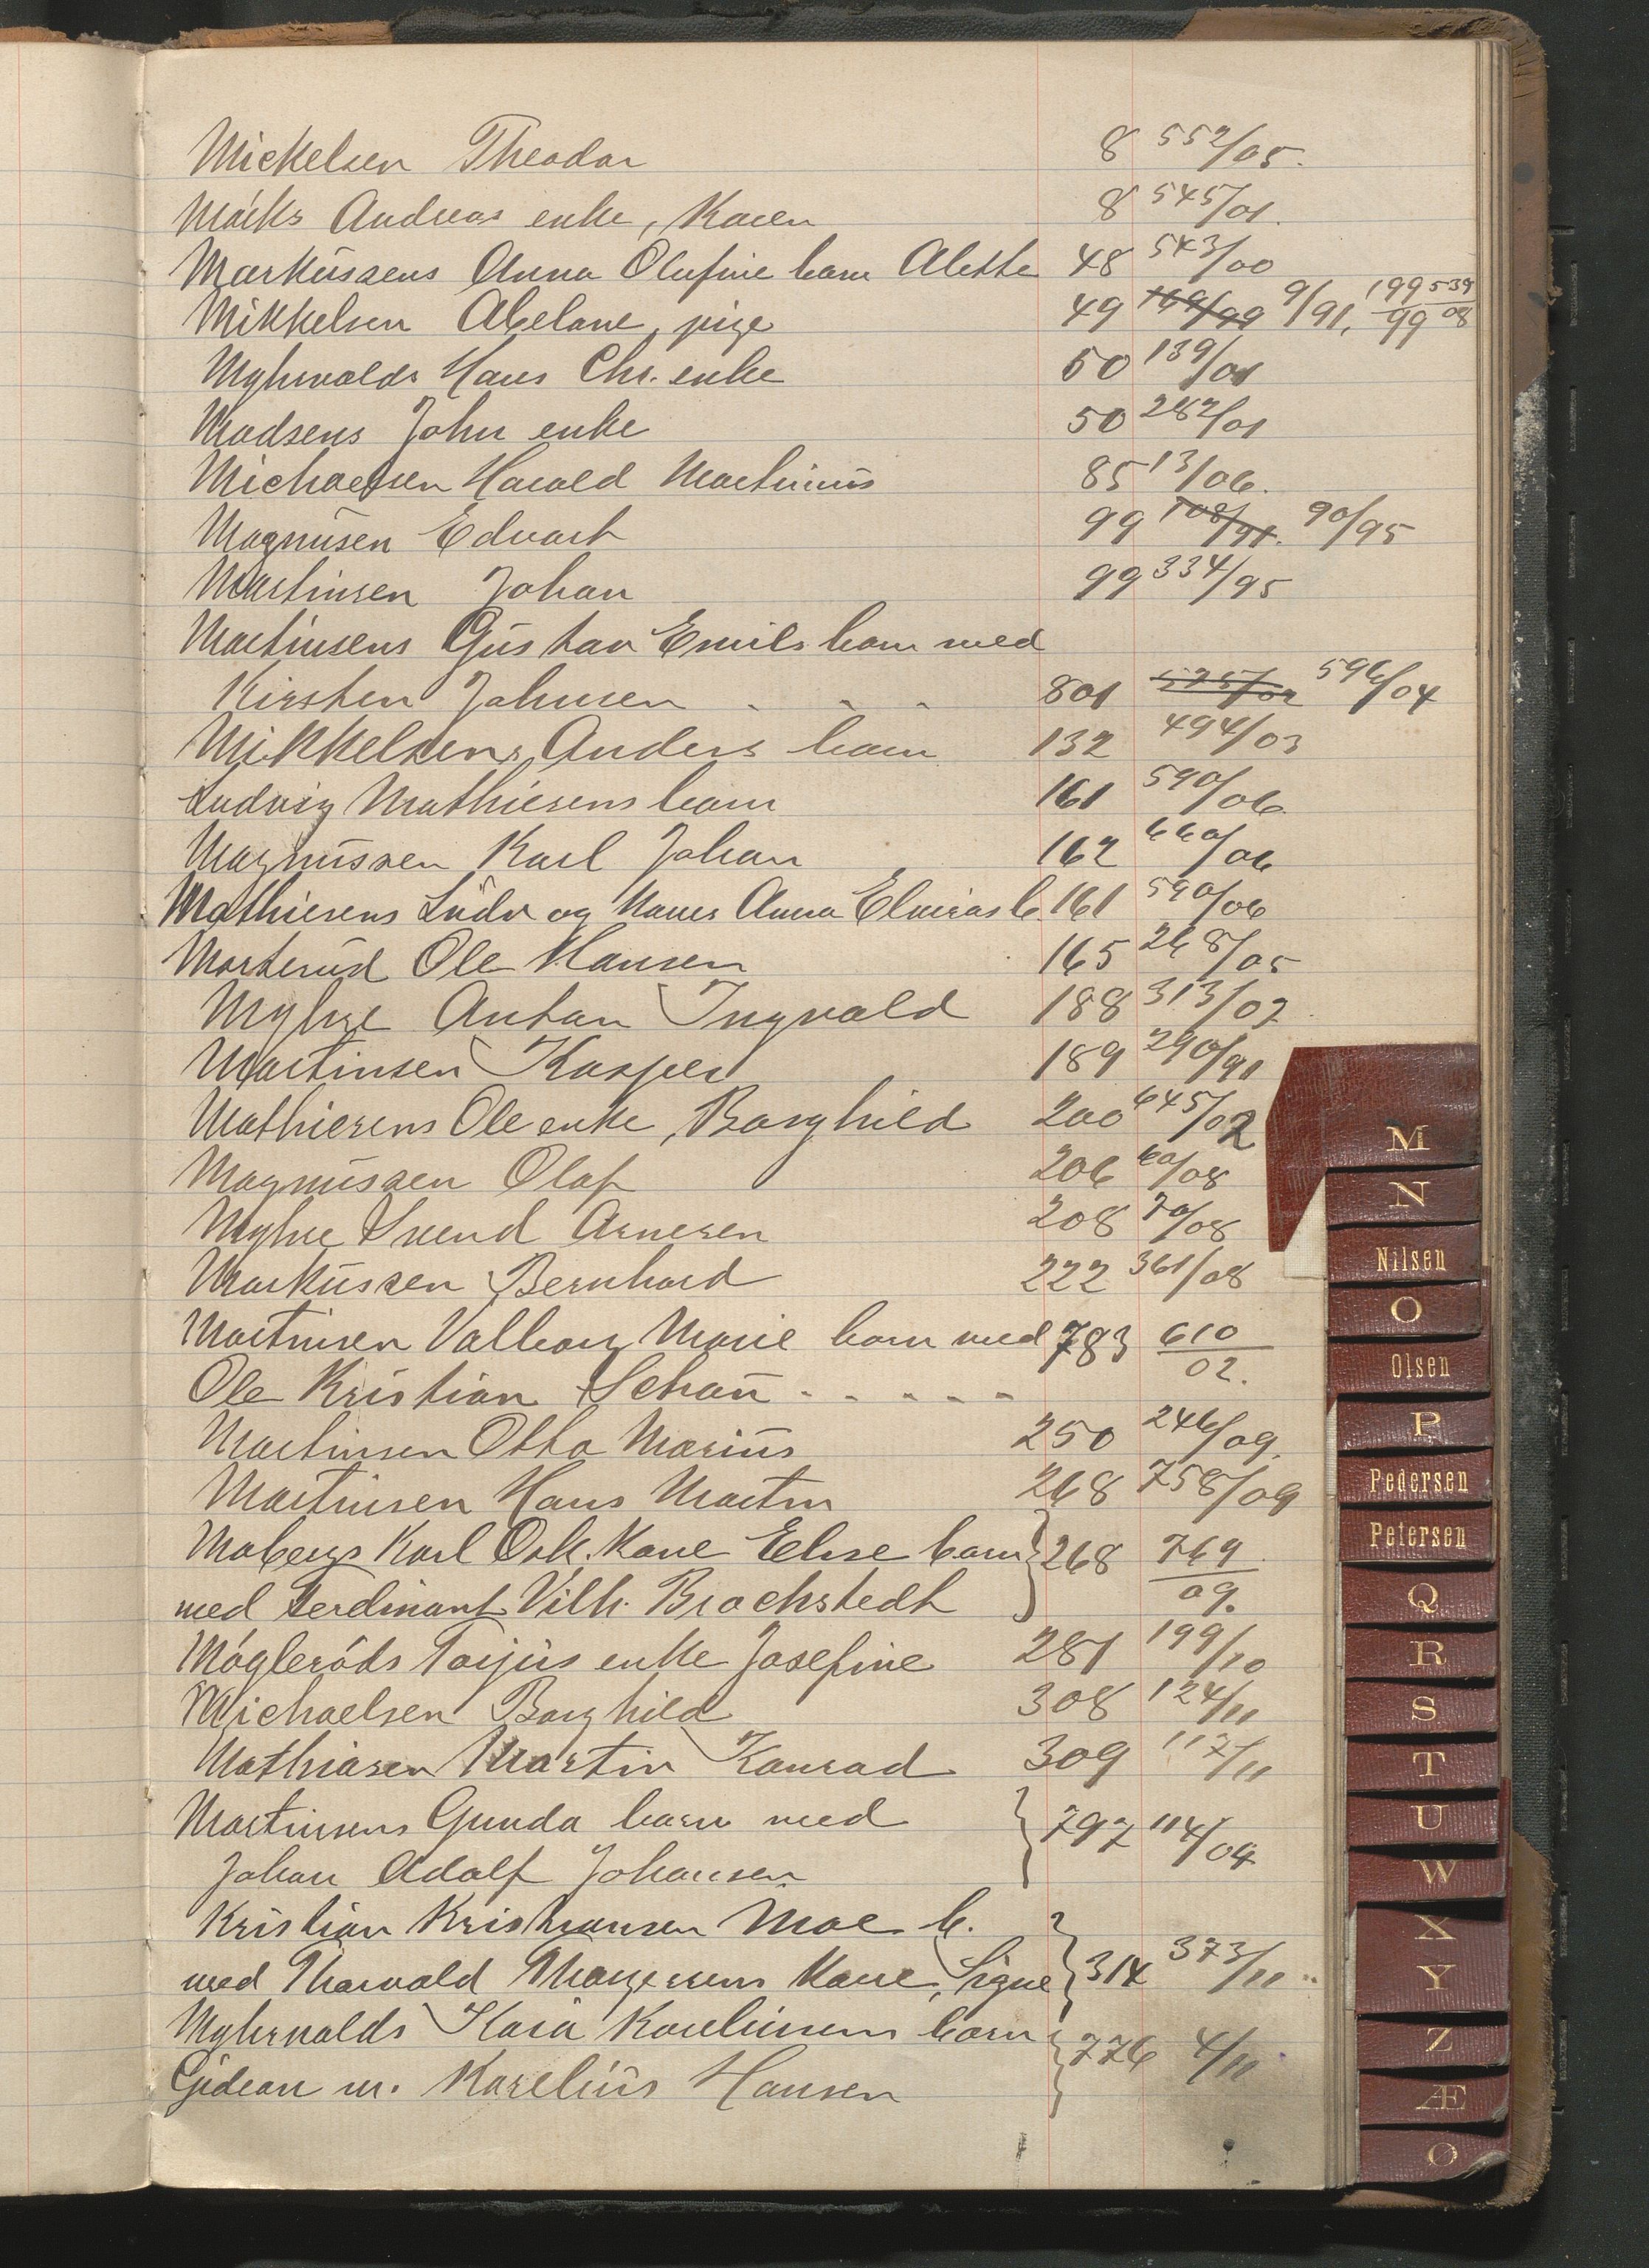 Mickelsen Theodor 8 552/05.
Mörks Andreas enke, Karen 8 545/01.
Markussens Anna Olufine barn Alette 48 543/00
Mikkelsen Abelone, pige 49 169/99 9/91, 199/99 539/08
Myhrvolds Hans Chr. enke 50 139/01
Madsens John enke 50 282/01
Michaelsen Harald Martinius 85 13/06.
Magnusen Edvart 99 108/91. 90/95
Martinsen Johan 99 334/95
Martinsens Gustav Emils barn med
Kirsten Johnsen - - - 801 525/02 596/04
Mikkelsens Anders barn 132 494/03
Ludvig Mathiesens barn 161 590/06.
Magnussen Karl Johan 162 660/06
Mathiesens Ludv og Kones Anna Elviras b. 161 590/06
Morterud Ole Hansen 165 268/05
Myhre Anton Ingvald 188 313/07
Martinsen Kasper 189 290/91
Mathiesens Ole enke, Borghild 200 645/02
Magnussen Olaf 206 60/08
Myhre Svend Arnesen 208 70/08
Markussen Bernhard 222 361/08
Martinsen Valborg Marie barn med 783 610/02.
Ole Kristian Schau - - - - -
Martinsen Otto Marius 250 246/09.
Martinsen Hans Martin 268 758/09
Mobergs Karl Osk. Kone Elise barn 268 769/09.
med Ferdinant Vilh. Brochstedt
Mögleröds Torjus enke Josefine 281 199/10
Michaelsen Borghild 308 124/11
Mathiasen Martin Konrad 309 117/11
Martinsens Gunda barn med 797 114/04
Johan Adolf Johansen
Kristian Kristiansen Moe b.
med Thorvald Thorgersens Kone, Signe 314 373/11
Myhrvolds Kaia Kareliussens barn 776 4/11
Gideon m. Karelius Hansen
M
N
Nilsen
O
Olsen
P
Pedersen
Petersen
Q
R
S
T
U
W
X
Y
Z
Æ
Ø